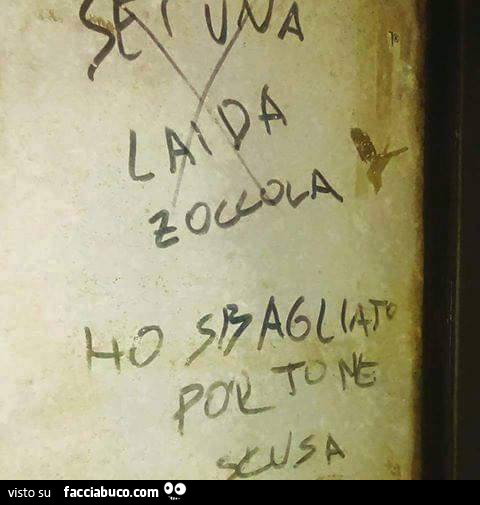 SEI UNA
LAIDA
ZOCCOLA
HO SBAGLIATO
PORTONE
SCUSA
visto su facciabuco.com